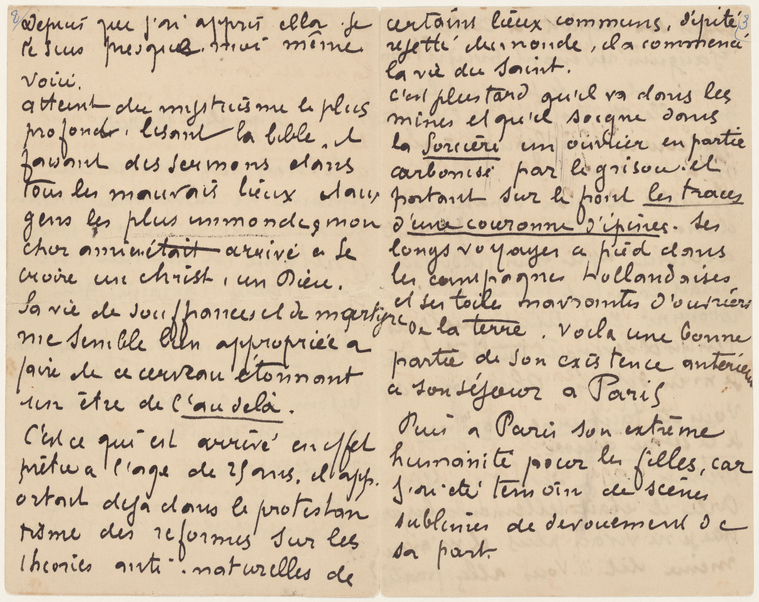 2
Depuis que j'ai appris cela je
le suis presque moi même
voici.
atteint du mysticisme le plus
profond, lisant la bible et
faisant des sermons dans
tous les mauvais lieux aux
gens les plus immondes, mon
cher ami en était arrivé à se
croire un Christ, un Dieu.
Sa vie de souffrances et de martyre
me semble bien appropriée a
faire de ce cerveau étonnant
un être de l'au delà.
C'est ce qui est arrivé en effet
prêtre a l'age de 25 ans, il app-
ortait deja dans le protestan
tisme des reformes sur les
theories anti-naturelles de
3
certains lieux communs, dépité
rejetté du monde, il a commencé
la vie du Saint.
C'est plus tard qu'il va dans les
mines et qu'il soigne dans
la Sorcière un ouvrier en partie
carbonisé par le grisou et
portant sur le front les traces
d'une couronne d'épines. Ses
longs voyages a pied dans
les campagnes hollandaises
et ses toiles navrantes d'ouvriers
de la terre. Voila une bonne
partie de son existence antérieure
a son séjour a Paris
Puis a Paris son extrême
humanité pour les filles, car
j'ai été temoin de scènes
sublimes de devouement de
sa part